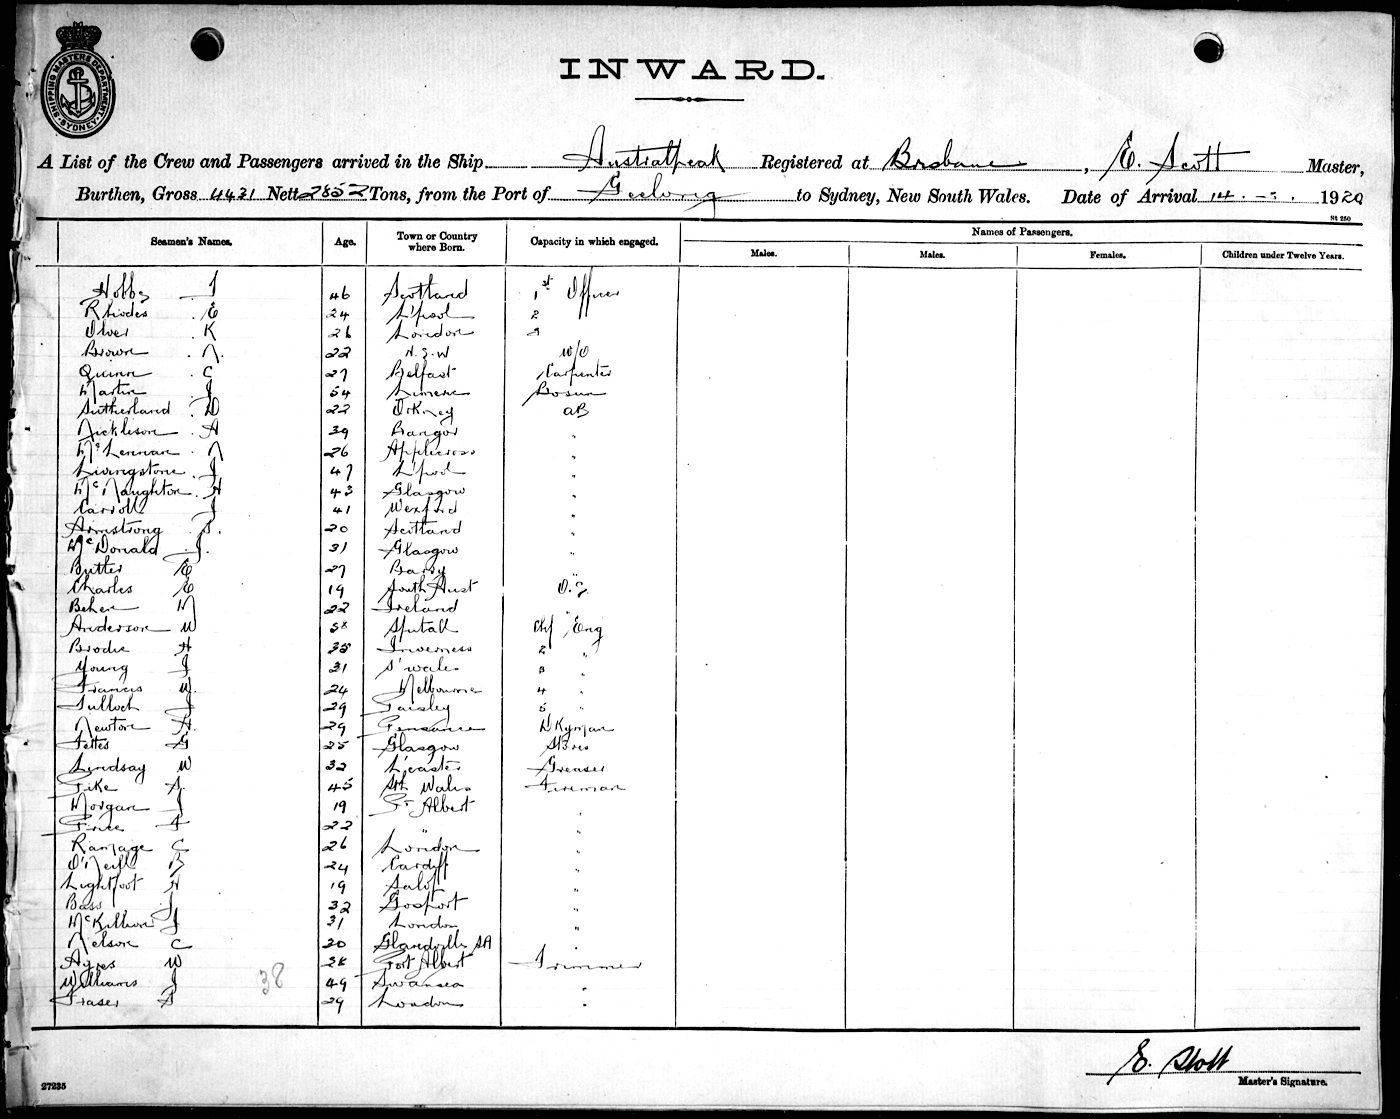 SHIPPING MASTERS DEPARTMENT
SYDNEY
INWARD.
A List of the Crew and Passengers arrived in the Ship Australpeak Registered at Brisbane, E. Scott Master,
Burthen, Gross 4431 Nett 2852 Tons, from the Port of Geelong to Sydney, New South Wales. Date of Arrival 14.-3. 1920
St 250
Seamen's Names. Age. Town or Country where Born. Capacity in which engaged. Names of Passengers.
Males. Males. Females. Children under Twelve Years.
Hobbs J 46 Scotland 1st Officer
Rhodes E 24 L'pool 2
Olver K 26 London 3
Brown N. 22 N.S.W W/O
Quinn C 27 Belfast Carpenter
Martin J 54 Limeric Bosun
Sutherland D 22 Orkney AB
Nickleson A 39 Bangor "
McLennan N 26 Applecross "
Livingstone J 47 L'pool "
McNaughton A 43 Glasgow "
Carroll J 41 Wexford "
Armstrong T. 20 Scotland "
McDonald J. 31 Glasgow "
Butter E 27 Barry "
Charles E 19 South Aust O.S
Beher M 22 Ireland "
Anderson W 58 Chf Eng
Brodie A 35 Inverness 2 "
Young J 31 S'wales 3 "
Francis W. 24 Melbourne 4 "
Tulloch J 29 Paisley 5 "
Newton A. 29 Pensance Dkyman
Fettes G 25 Glasgow Stores
Lindsay W 32 L'caster Greaser
Pike A. 45 Sth Wales Fireman
Morgan J 19 Pt Albert "
Price F 22 " "
Ramage C 26 London "
O'Neill B 24 Cardiff "
Lightfoot H 19 "
Bass J 32 Gosport "
McKillion J 31 London "
Nelson C 20 Glandville SA "
Ayres W 28 Port Albert Trimmer
Williams J 49 Swansea "
Fraser A 29 London "
38
E. Scott
Master's Signature.
27235